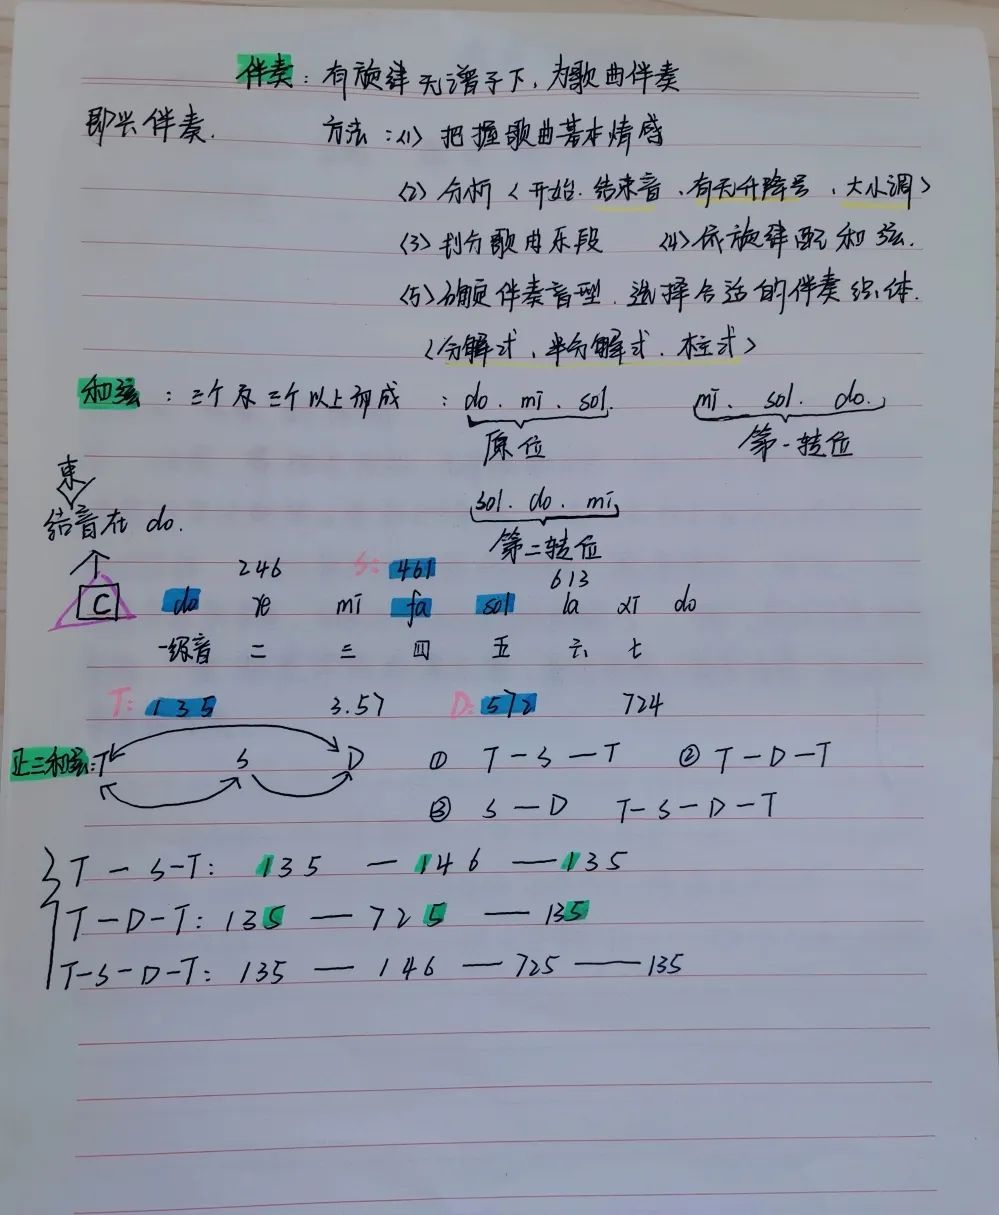 伴奏：有旋律无谱子下，为歌曲伴奏
即兴伴奏. 方法：(1) 把握歌曲基本情感
(2) 分析〈开始.结束音、有无升降号、大小调〉
(3) 划分歌曲乐段 (4) 依旋律配和弦.
(5) 确定伴奏音型.选择合适的伴奏织体.
〈分解式、半分解式.柱式〉
和弦：三个及三个以上而成：do.mi.sol. mi.sol.do.
原位 第一转位
束
结音在do. sol.do.mi.
第二转位
246 S: 461 613
C do re mi fa sol la xi do
一级音 二 三 四 五 六 七
T: 135 3.57 D: 572 724
正三和弦：T S D ① T-S-T ② T-D-T
③ S-D T-S-D-T
T-S-T: 135 — 146 — 135
T-D-T: 135 — 725 — 135
T-S-D-T: 135 — 146 — 725 — 135